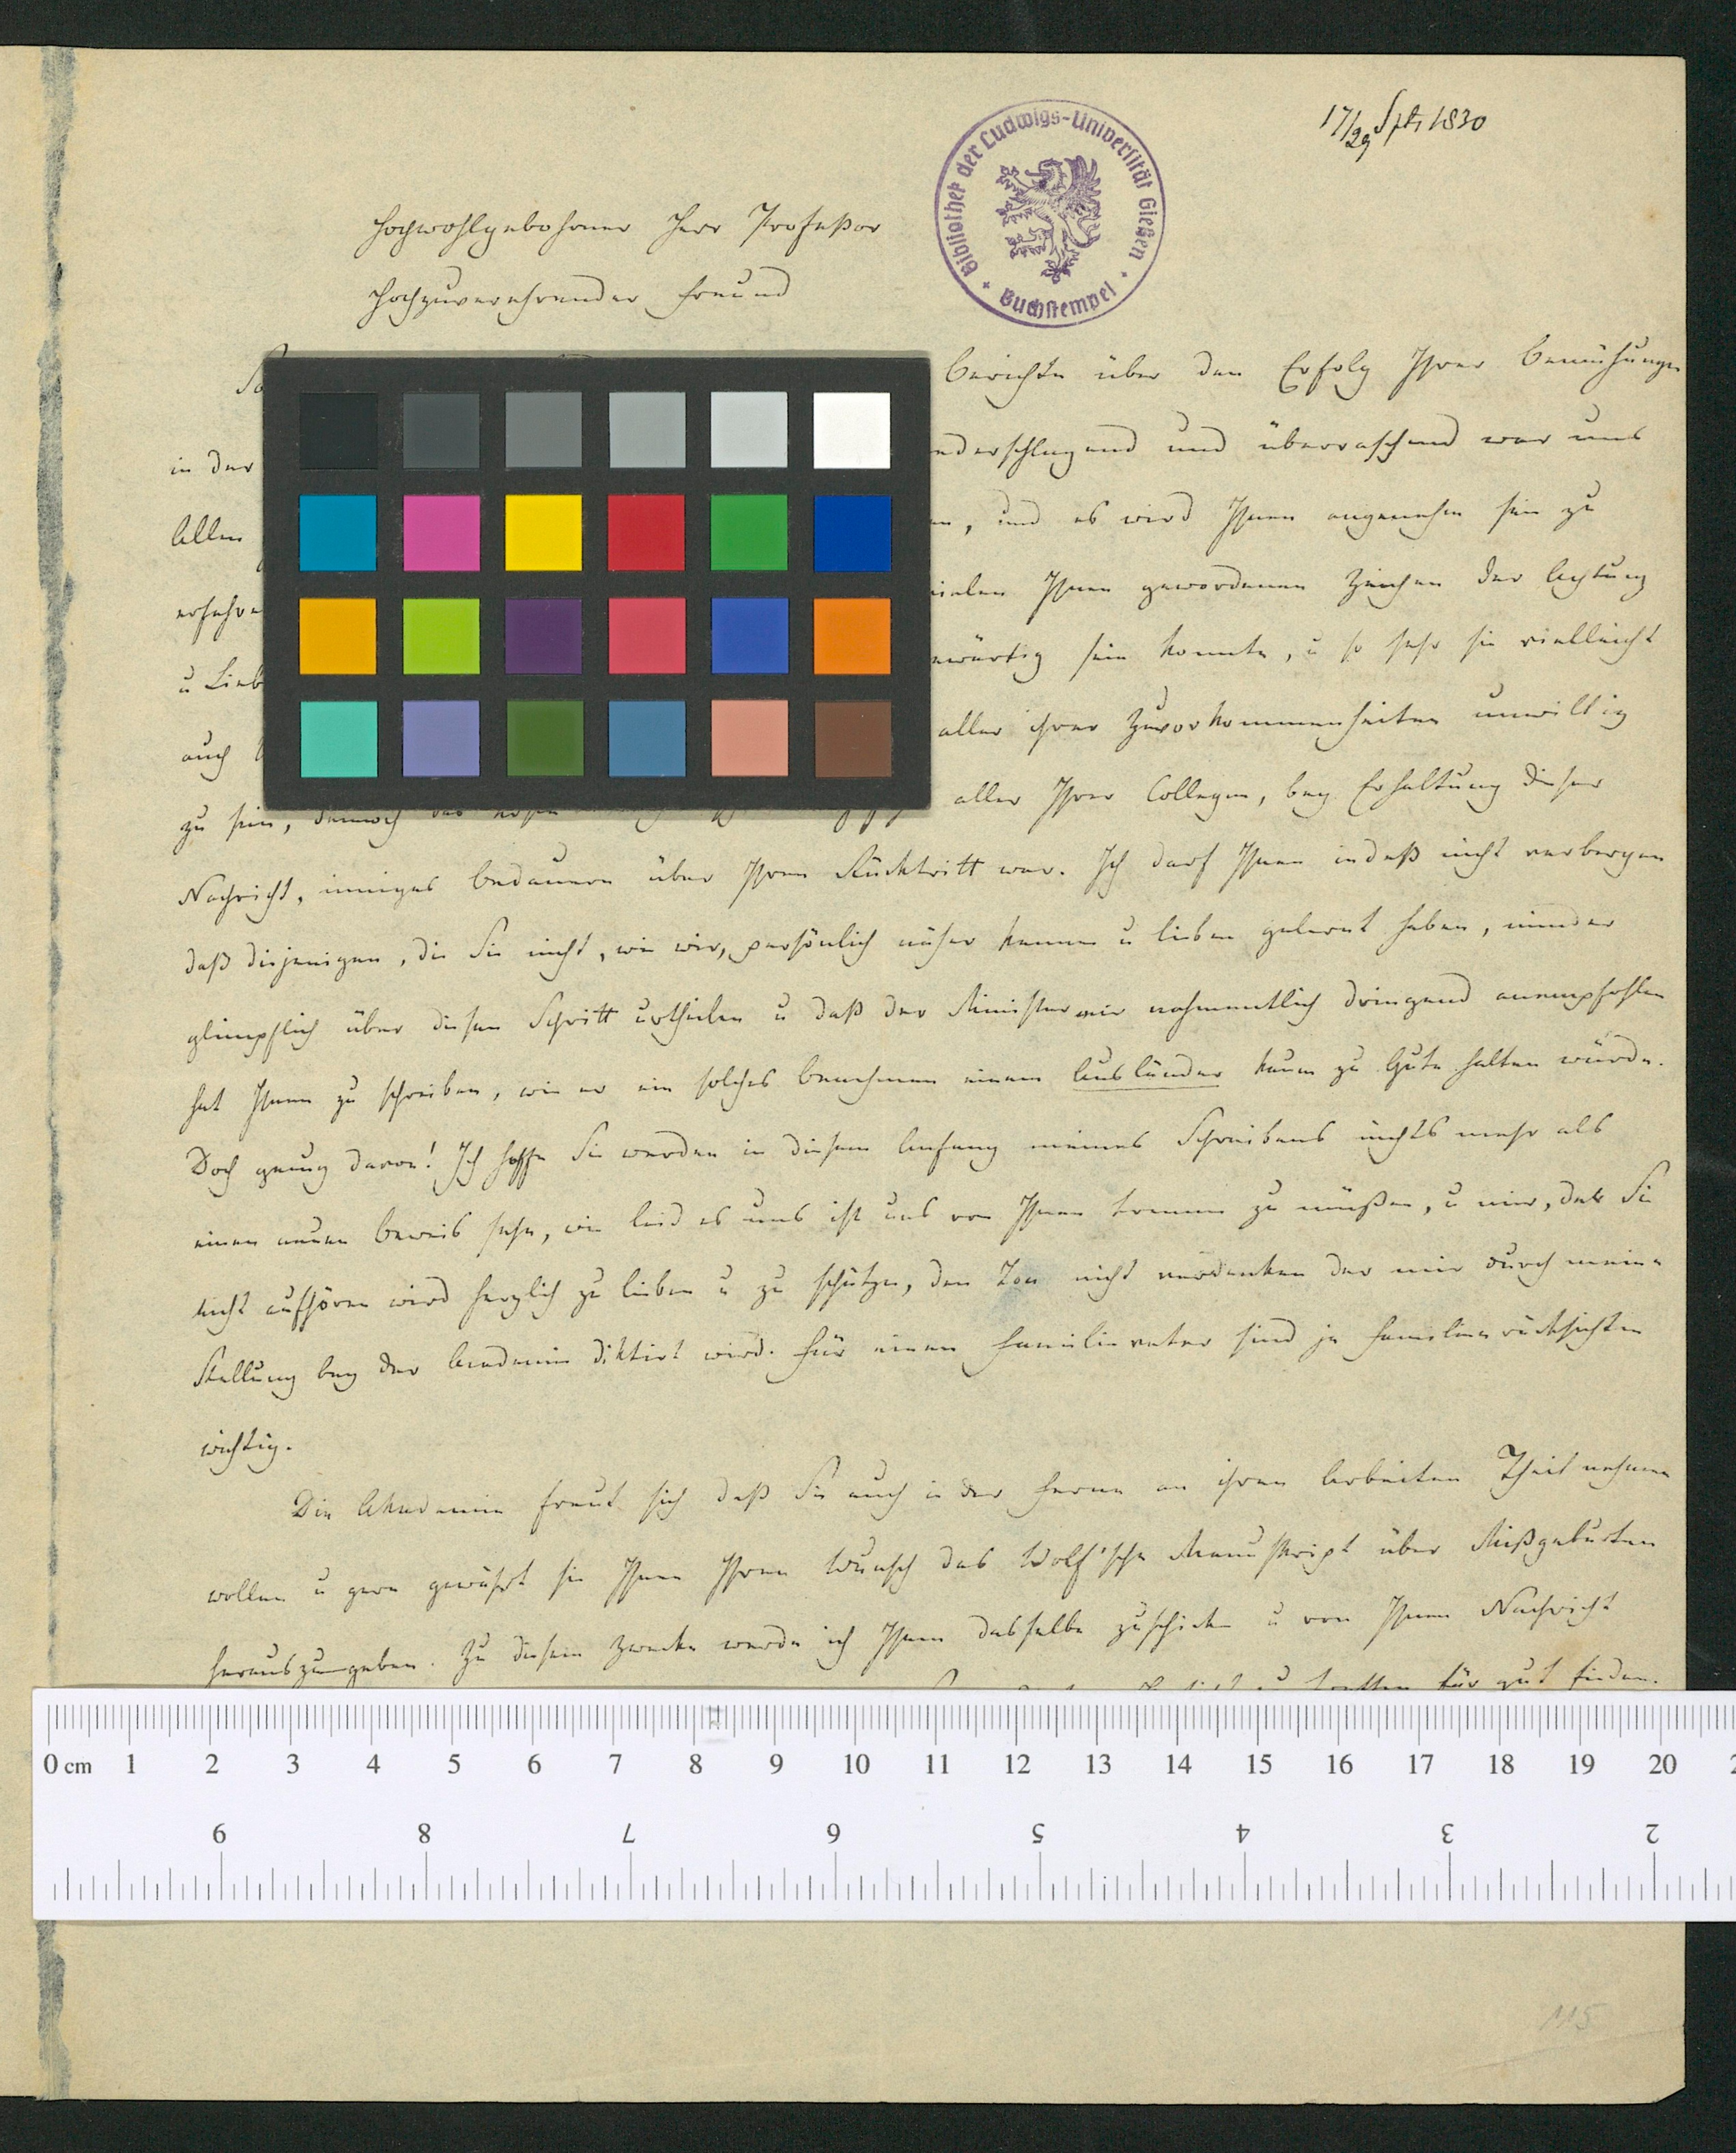 17/29 Spt. 1830
Bibliothek der Ludwigs-Universität Gießen
Buchstempel
Hochwohlgebohrner Herr Profeßor
Hochzuverehrender Freund
So
Berichte über den Erfolg Ihrer Bemühungen
in der
ederschlagend und überraschend war uns
Allen
en, und es wird Ihnen angenehm sein zu
erfahre
ielen Ihnen gewordenen Zeichen der Achtung
u Lieb
ewärtig sein konnte, u so sehr sie vielleicht
auch
aller ihrer Zuvorkommenheiten unwillig
zu sein, dennoch das
aller Ihrer Collegen, bey Erhaltung dieser
Nachricht, inniges Bedauern über Ihren Rücktritt war. Ich darf Ihnen indeß nicht verbergen
daß diejenigen, die Sie nicht, wie wir, persönlich näher kennen u lieben gelernt haben, minder
glimpflich über diesen Schritt urtheilen u daß der Minister mir nahmentlich dringend anempfohlen
hat Ihnen zu schreiben, wie er ein solches Benehmen einem Ausländer kaum zu Gute halten würde.
Doch genug davon! Ich hoffe Sie werden in diesem Anfang meines Schreibens nichts mehr als
einen neuen Beweis sehn, wie leid es uns ist uns von Ihnen trennen zu müßen, u mir, der Sie
nicht aufhören wird herzlich zu lieben u zu schätzen, den Ton nicht verdenken der mir durch meine
Stellung bey der Academie diktirt wird. Für einen Familienvater sind ja Familienrücksichten
wichtig.
Die Akademie freut sich daß Sie auch in der Ferne an ihren Arbeiten Theil nehmen
wollen u gern gewährt sie Ihnen Ihren Wunsch das Wolf'sche Manuskript über Mißgeburten
herauszugeben. Zu diesem Zwecke werde ich Ihnen dasselbe zuschicken u von Ihnen Nachricht
treffen für gut finden.
0 cm 1 2 3 4 5 6 7 8 9 10 11 12 13 14 15 16 17 18 19 20
9 8 7 6 5 4 3 2
115